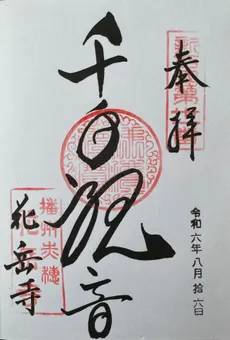 奉拝
令和六年八月拾六日
千手観音
播州赤穂
花岳寺